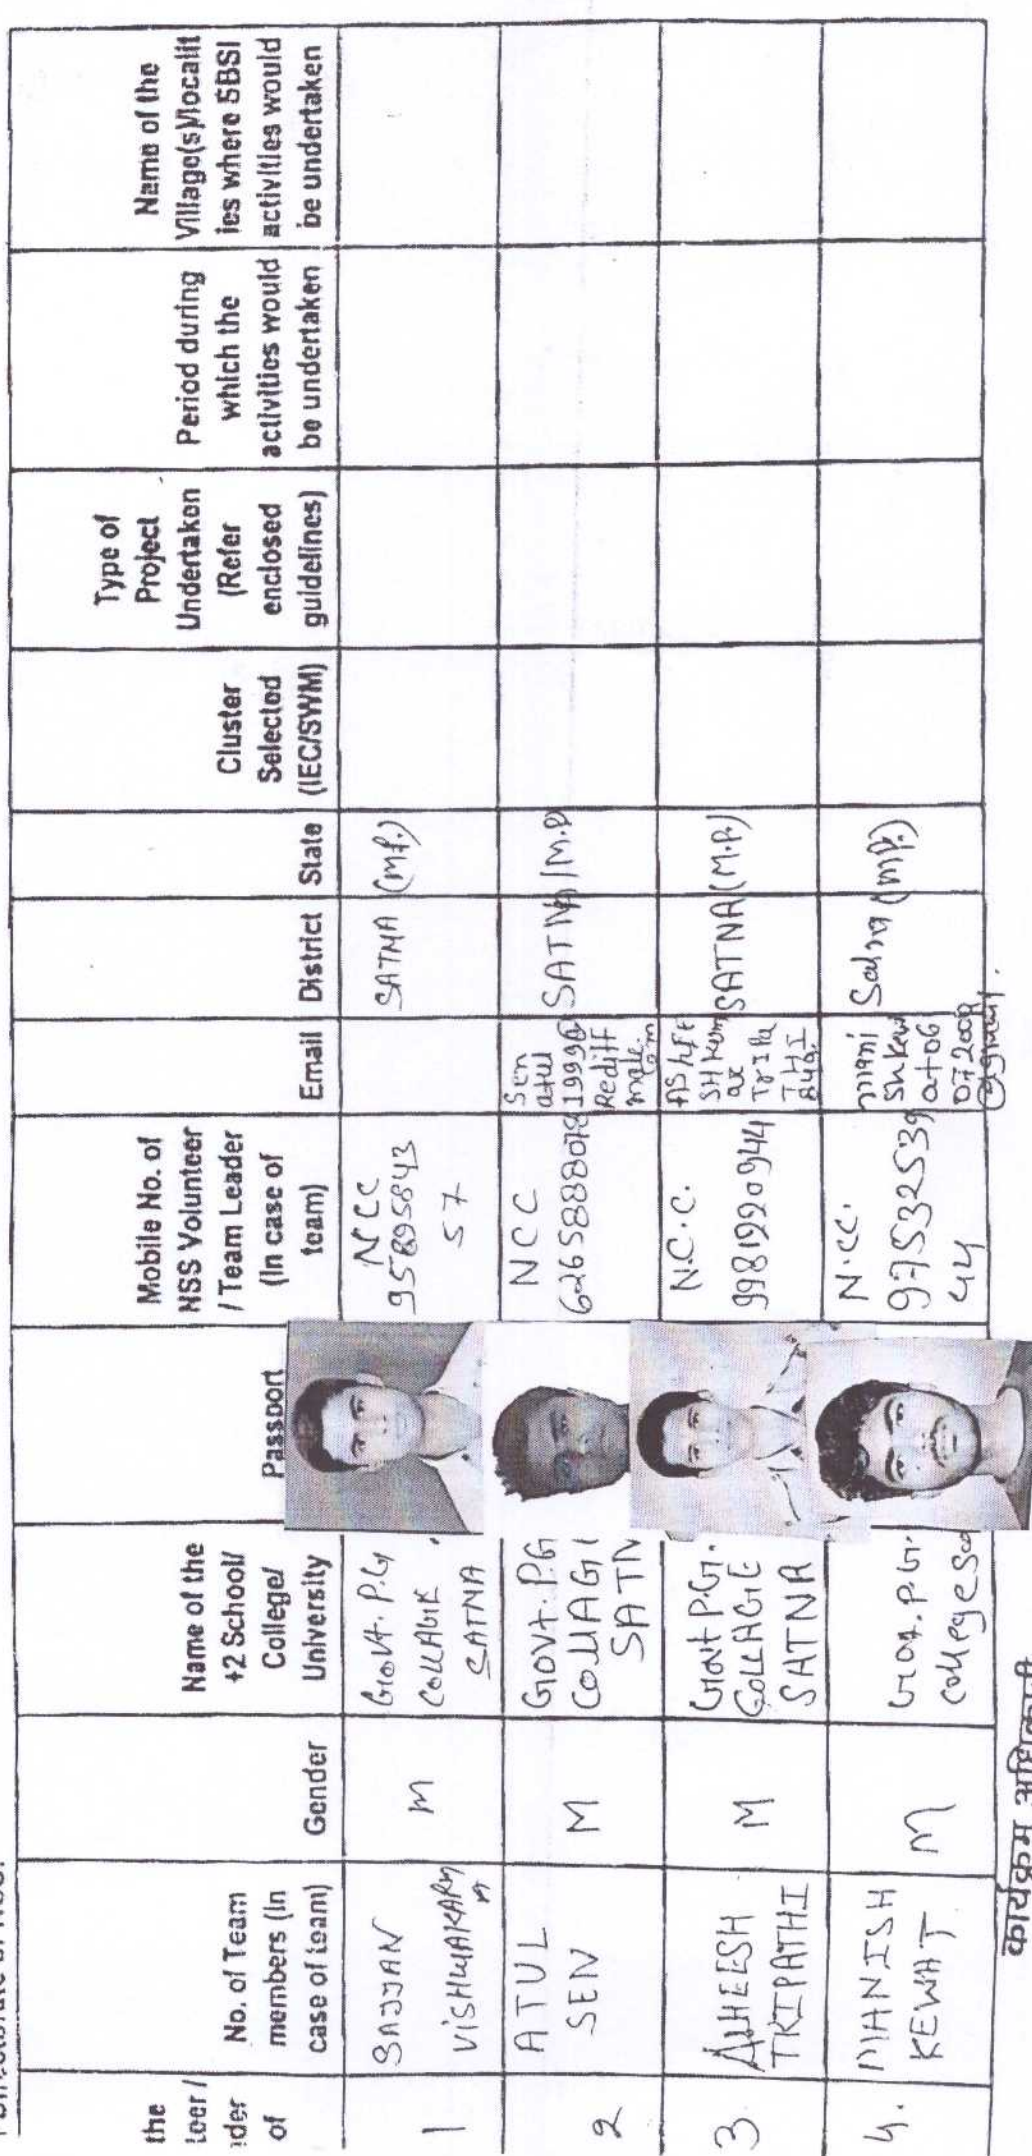 the
teer /
ider
of
No. of Team
members (In
case of team)
Gender
Name of the
+2 School/
College/
University
Passport
Mobile No. of
NSS Volunteer
/ Team Leader
(In case of
team)
Email
District
State
Cluster
Selected
(IEC/SWM)
Type of
Project
Undertaken
(Refer
enclosed
guidelines)
Period during
which the
activities would
be undertaken
Name of the
Village(s)/localit
ies where SBSI
activities would
be undertaken
1
SAJJAN
VISHWAKARM
M
Govt. P.G
COLLAGE
SATNA
NCC
95895843
57
SATNA
(M.P.)
2
ATUL
SEN
M
GOVt. P.G
COLLAG
SATN
NCC
6265888078
Sen
atul
1999@
Rediff
SATNA
(M.P)
3
TRIPATHI
M
Govt P.G.
COLLAGE
SATNA
N.C.C.
9981920944
SATNA
(M.P.)
4.
MANISH
KEWAT
M
Govt. P.G.
College Sa
N.CC.
97532539
44
mani
shkew
at06
072000
Satna
(MP.)
कार्यक्रम अधिकारी